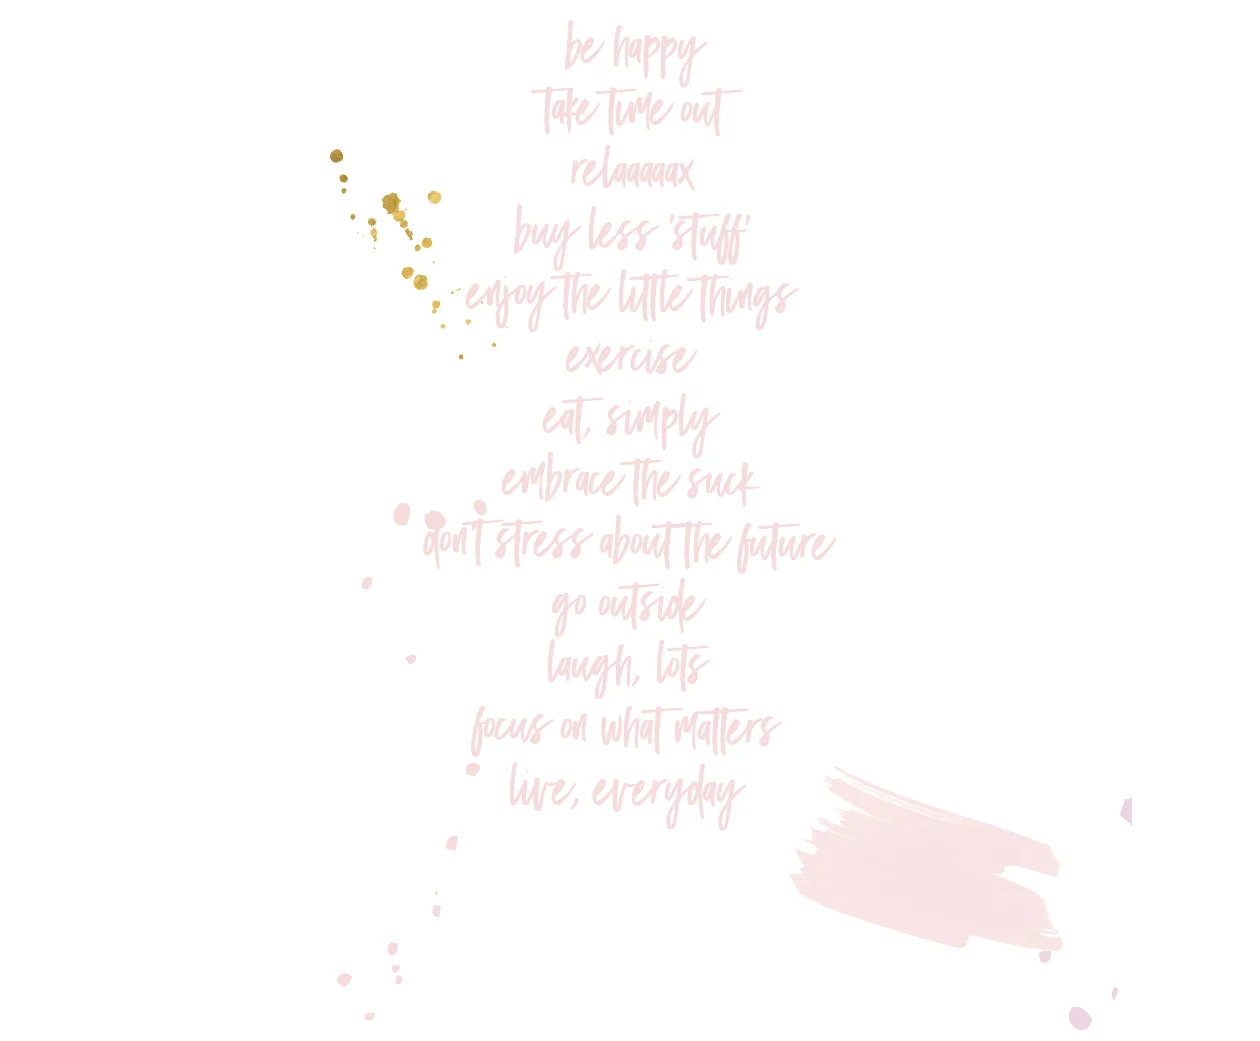 be happy
take time out
relaaaaax
buy less 'stuff'
enjoy the little things
exercise
eat, simply
embrace the suck
don't stress about the future
go outside
laugh, lots
focus on what matters
live, everyday